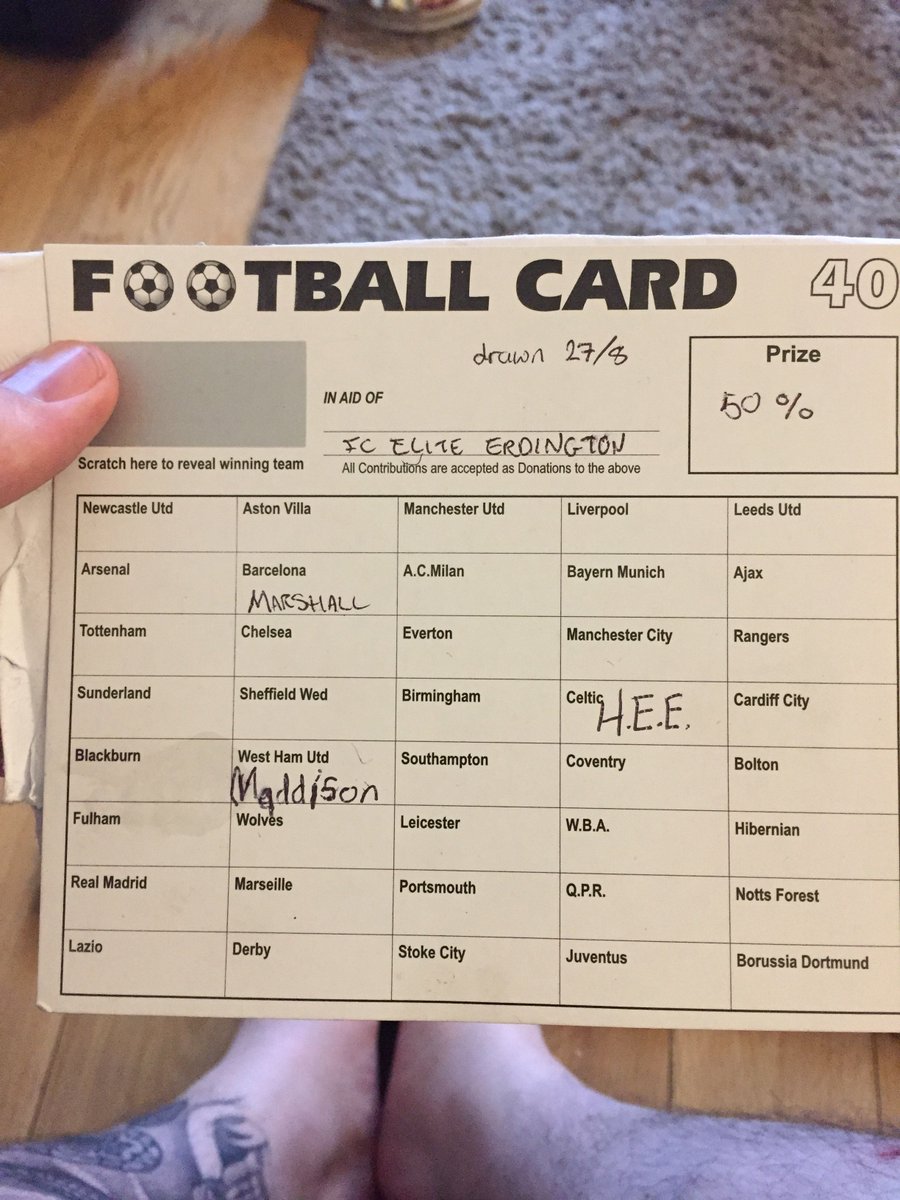 FOOTBALL CARD 40
drawn 27/8
Prize
50 %
IN AID OF
JC ELITE ERDINGTON
Scratch here to reveal winning team
All Contributions are accepted as Donations to the above
Newcastle Utd Aston Villa Manchester Utd Liverpool Leeds Utd
Arsenal Barcelona A.C.Milan Bayern Munich Ajax
MARSHALL
Tottenham Chelsea Everton Manchester City Rangers
Sunderland Sheffield Wed Birmingham Celtic Cardiff City
H.E.E.
Blackburn West Ham Utd Southampton Coventry Bolton
Maddison
Fulham Wolves Leicester W.B.A. Hibernian
Real Madrid Marseille Portsmouth Q.P.R. Notts Forest
Lazio Derby Stoke City Juventus Borussia Dortmund